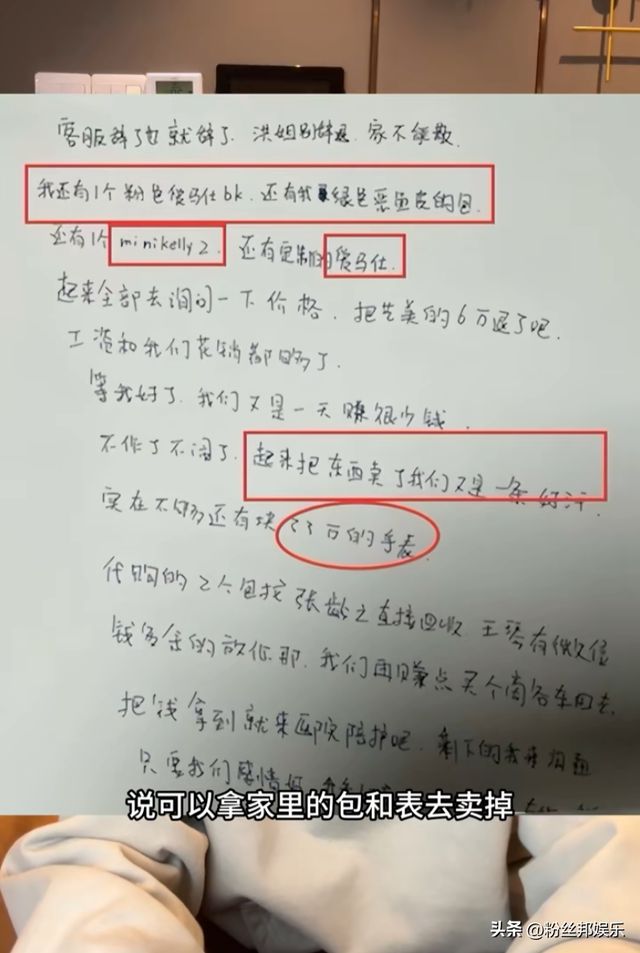 客服辞了也就辞了. 洪姐别辞退. 家不能散.
我还有1个粉色爱马仕bk. 还有我绿色恶鱼皮的包.
还有1个minikelly2. 还有定制的爱马仕.
起来全部去询问一下价格. 把艺美的6万退了吧.
工资和我们花销都够了.
等我好了. 我们又是一天赚很少钱.
不作了不闹了. 起来把东西卖了我们又是一条好汉.
实在不够还有块23万的手表.
代购的2个包找张龄之直接回收 王琴有微信
钱多余的放你那. 我们再赚点买个商务车回去
把钱拿到就来医院陪护吧. 剩下的我来沟通
只要我们感情好
说可以拿家里的包和表去卖掉
头条 @粉丝邦娱乐